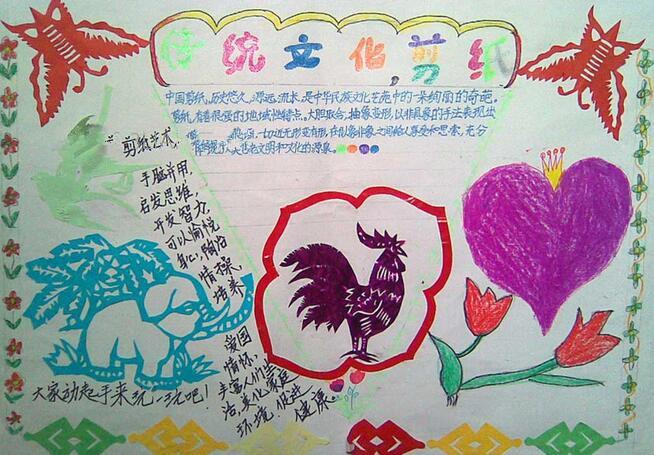 传统文化,剪纸
中国剪纸,历史悠久,源远流长,是中华民族文化艺苑中的一朵绚丽的奇葩。
剪纸有着很强的地域性特点。大胆取合,抽象变形,以非具象的手法表现出
一切近无形变有形,在似象非象之间给人享受和思索,充分
文明和文化的源泉。
剪纸艺术,
手脑并用,
启发思维,
开发智力,
可以愉悦
身心,陶冶
情操,
培养
爱国
情怀,
丰富人们生
活,美化家庭
环境,促进
健康。
大家动起手来玩一玩吧!